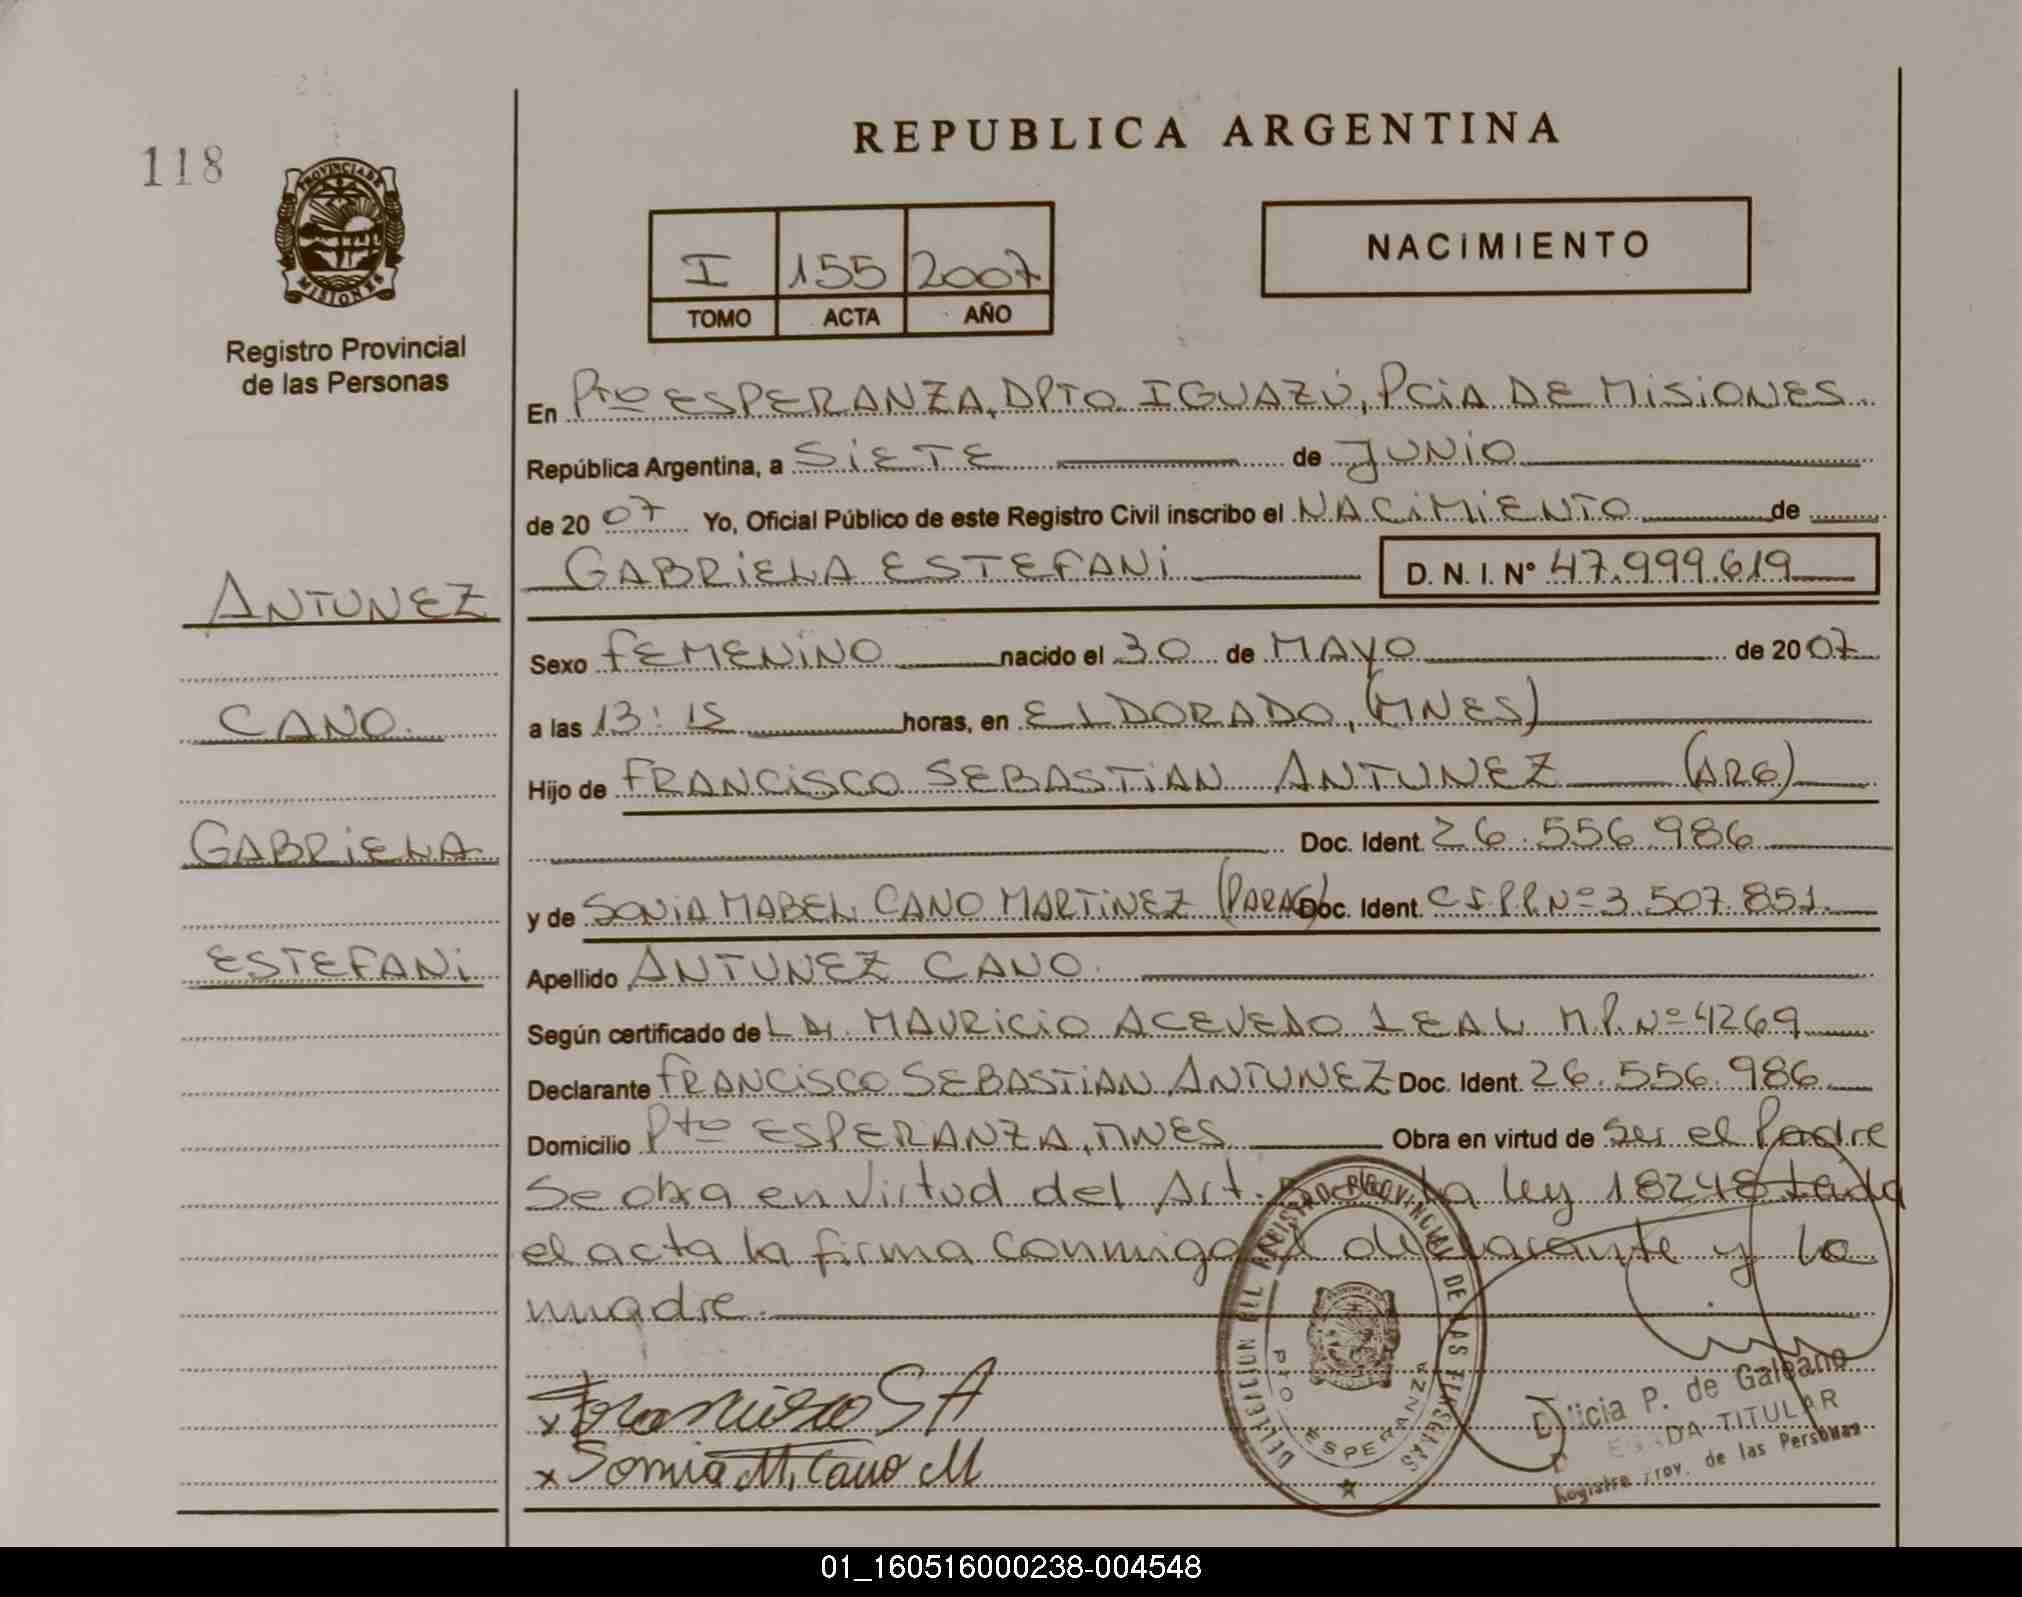 REPUBLICA ARGENTINA
118
PROVINCIA DE
MISIONES
Registro Provincial
de las Personas
I 155 2007
TOMO ACTA AÑO
NACIMIENTO
En Pto ESPERANZA, DPTO IGUAZÚ, PCIA DE MISIONES
República Argentina, a SIETE de JUNIO
de 2007 Yo, Oficial Público de este Registro Civil inscribo el NACIMIENTO de
GABRIELA ESTEFANI D. N. I. Nº 47.999.619
ANTUNEZ
CANO.
GABRIELA
ESTEFANI
Sexo FEMENINO nacido el 30 de MAYO de 2007
a las 13:15 horas, en ELDORADO, (MNES)
Hijo de FRANCISCO SEBASTIAN ANTUNEZ (ARG)
Doc. Ident. 26.556.986
y de SONIA MABEL CANO MARTINEZ (PARAG) Doc. Ident. Nº 3.507.851
Apellido ANTUNEZ CANO.
Según certificado de MAURICIO ACEVEDO LEAL M.P. Nº 4269
Declarante FRANCISCO SEBASTIAN ANTUNEZ Doc. Ident. 26.556.986
Domicilio Pto ESPERANZA, MNES Obra en virtud de Ser el Padre
Se obra en virtud del Art. la ley 18248 Leida
el acta la firma conmigo el declarante y la
madre.
Francisco S A
Sonia M. Cano M
DELEGACION DEL REGISTRO PROVINCIAL DE LAS PERSONAS
PTO ESPERANZA
P. de Galeano
TITULAR
de las Personas
01_160516000238-004548